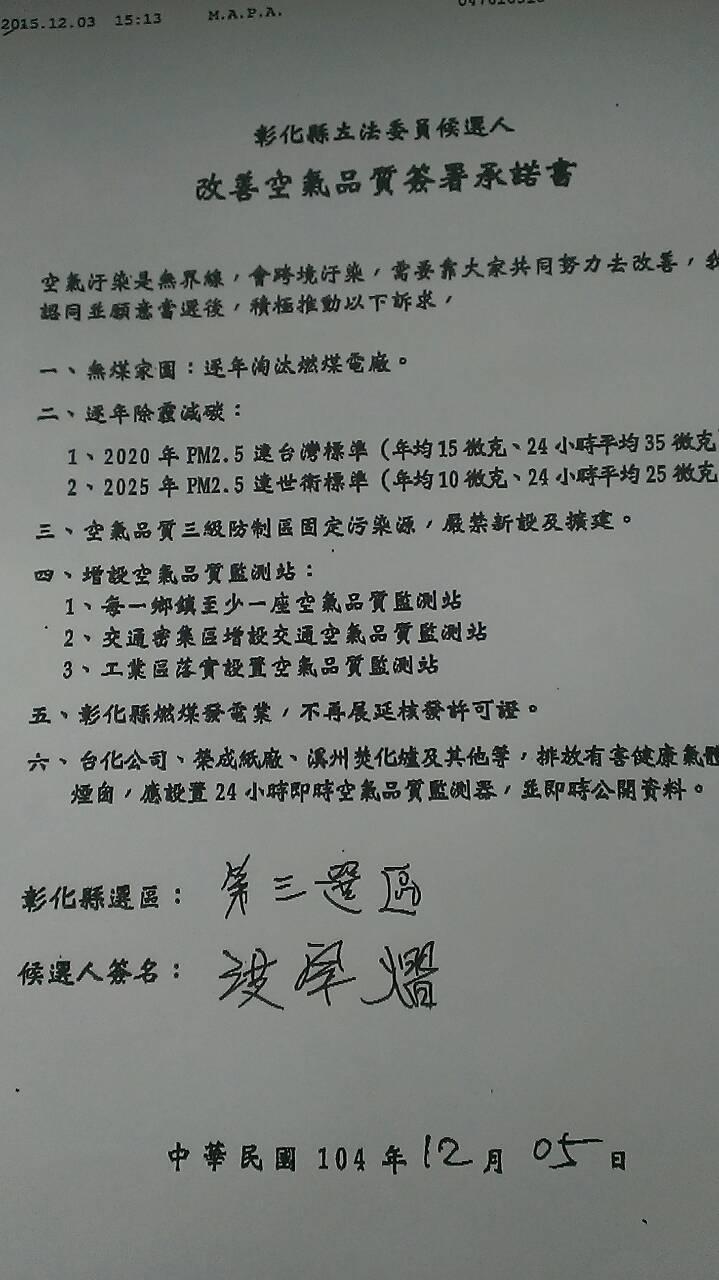 2015.12.03 15:13 M.A.P.A.
彰化縣立法委員候選人
改善空氣品質簽署承諾書
空氣汙染是無界線，會跨境汙染，需要靠大家共同努力去改善，我
認同並願意當選後，積極推動以下訴求，
一、無煤家園：逐年淘汰燃煤電廠。
二、逐年除霾減碳：
1、2020 年 PM2.5 達台灣標準（年均15 微克、24 小時平均 35 微克
2、2025 年 PM2.5 達世衛標準（年均10 微克、24 小時平均 25 微克
三、空氣品質三級防制區固定污染源，嚴禁新設及擴建。
四、增設空氣品質監測站：
1、每一鄉鎮至少一座空氣品質監測站
2、交通密集區增設交通空氣品質監測站
3、工業區落實設置空氣品質監測站
五、彰化縣燃煤發電業，不再展延核發許可證。
六、台化公司、榮成紙廠、溪州焚化爐及其他等，排放有害健康氣體
煙囪，應設置 24 小時即時空氣品質監測器，並即時公開資料。
彰化縣選區：第三選區
候選人簽名：
中華民國 104 年 12 月 05 日